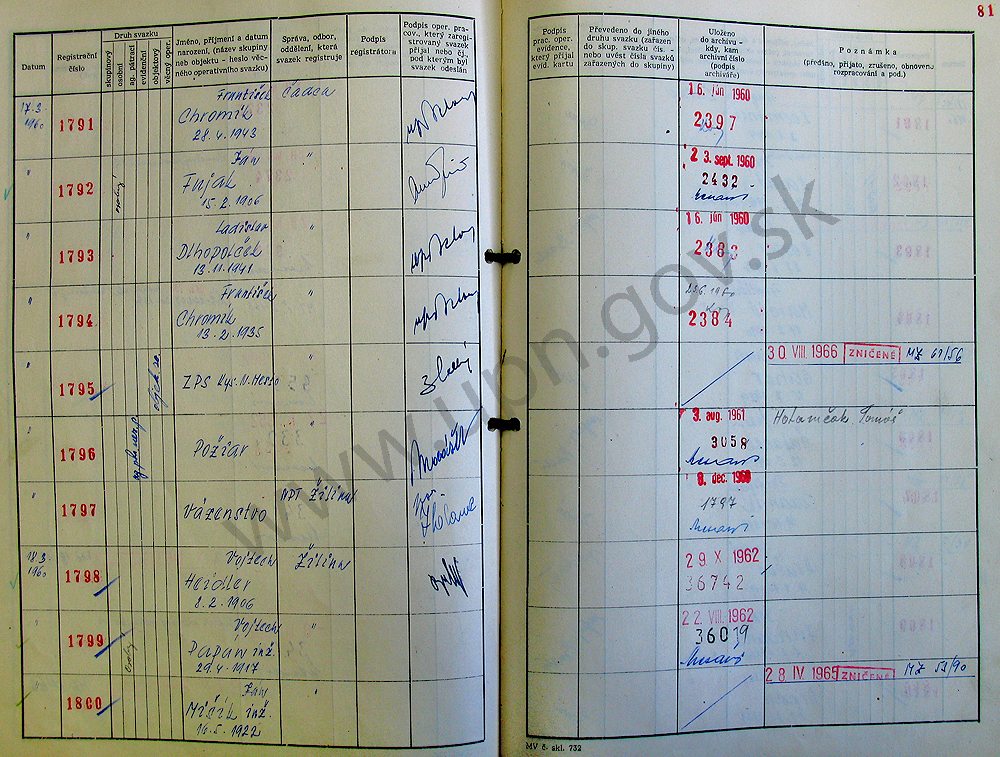 81
Datum
Registračné číslo
Druh svazku
skupinový
osobní
ag. pátrací
evidenční
objektový
věcný oper.
Jméno, příjmení a datum
narození, (název skupiny
neb objektu - heslo věc-
ného operativního svazku)
Správa, odbor,
oddělení, která
svazek registruje
Podpis
registrátora
Podpis oper. pra-
cov., který zaregi-
strovaný svazek
přijal nebo čj.
pod kterým byl
svazek odeslán
Podpis
prac. oper.
evidence,
který přijal
evid. kartu
Převedeno do jiného
druhu svazku (zařazen
do skup. svazku čís. -
nebo uvést čísla svazků
zařazených do skupiny)
Uloženo
do archivu -
kdy, kam
archivní číslo
(podpis
archiváře)
Poznámka
(předáno, přijato, zrušeno, obnoveno
rozpracování a pod.)
17.3.
1960
1791
František
Chromík
28.4.1943
Čadca
16. jún 1960
2397
"
1792
Ján
Fujak
15.2.1906
"
23. sept. 1960
2432
"
1793
Ladislav
Dlhopolček
13.11.1941
"
16. jún 1960
"
1794
František
Chromík
13.2.1935
"
2384
"
1795
ZPS Kys. N. Mesto
"
30 VIII. 1966
ZNIČENÉ
MZ 61/56
"
1796
Požiar
"
3. aug. 1961
3058
"
1797
Väzenstvo
Žilina
8. dec. 1960
1797
18.3.
1960
1798
Vojtech
Heidler
8.2.1906
Žilina
29 X 1962
36742
"
1799
Vojtech
inž.
29.4.1917
"
22. VIII. 1962
36039
"
1800
Ján
Mičík inž.
16.5.1922
"
28 IV. 1965
ZNIČENÉ
MZ 53/90
MV č. skl. 732
www.upn.gov.sk